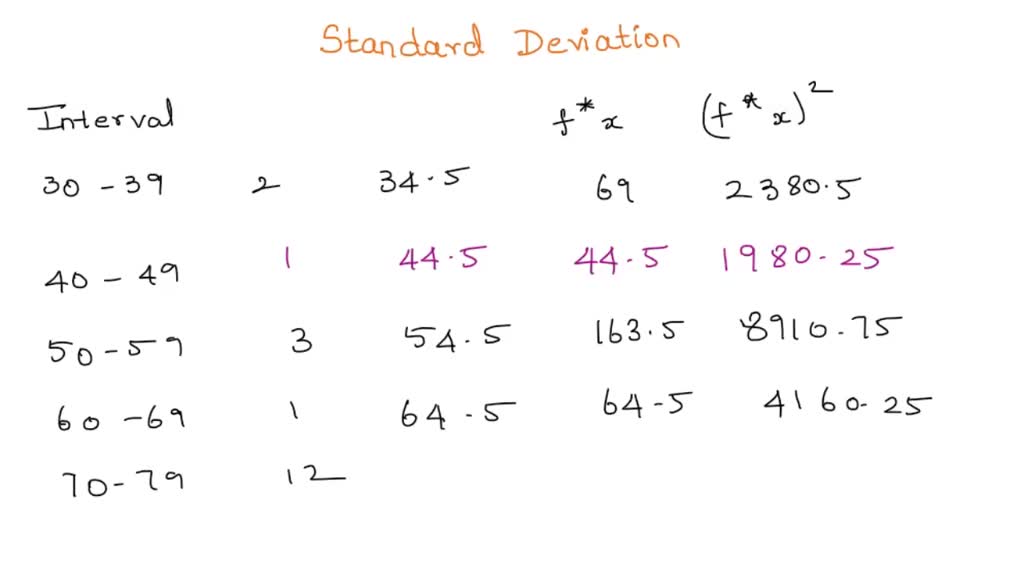 Standard Deviation
Interval f*x (f*x)²
30 - 39 2 34.5 69 2380.5
40 - 49 1 44.5 44.5 1980.25
50 - 59 3 54.5 163.5 8910.75
60 - 69 1 64.5 64.5 4160.25
70 - 79 12